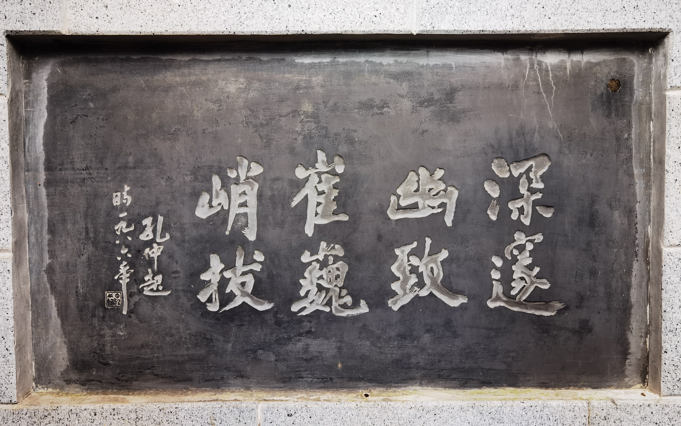 深邃
幽致
崔巍
峭拔
孔仲起
時一九八六年